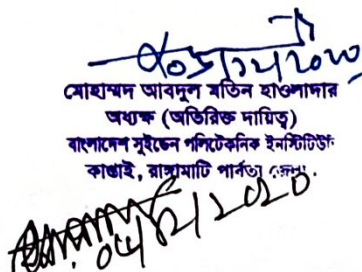 মোহাম্মদ আবদুল মতিন হাওলাদার
অধ্যক্ষ (অতিরিক্ত দায়িত্ব)
বাংলাদেশ সুইডেন পলিটেকনিক ইনস্টিটিউট
কাপ্তাই, রাঙ্গামাটি পার্বত্য জেলা.